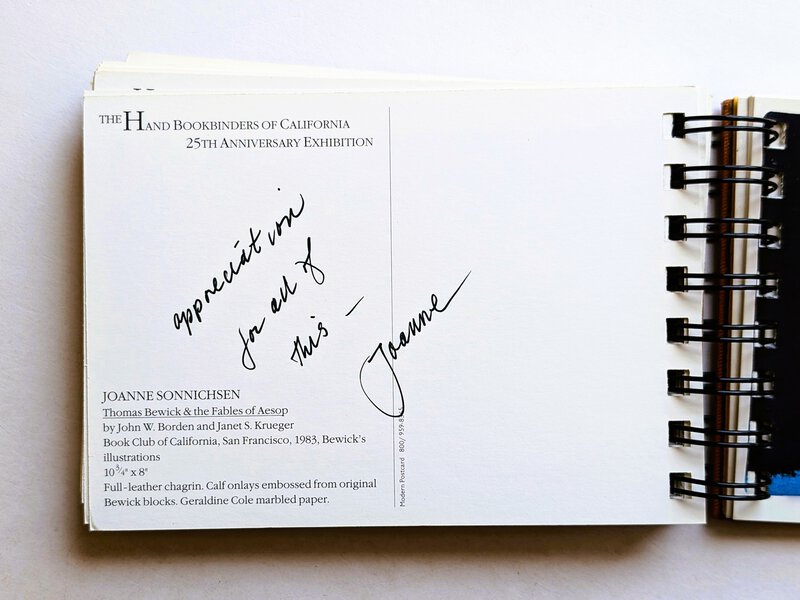 THE HAND BOOKBINDERS OF CALIFORNIA
25TH ANNIVERSARY EXHIBITION
appreciation
for all of
this –
Joanne
JOANNE SONNICHSEN
Thomas Bewick & the Fables of Aesop
by John W. Borden and Janet S. Krueger
Book Club of California, San Francisco, 1983, Bewick's
illustrations
10 3/4" x 8"
Full-leather chagrin. Calf onlays embossed from original
Bewick blocks. Geraldine Cole marbled paper.
Modern Postcard 800/ 959-8